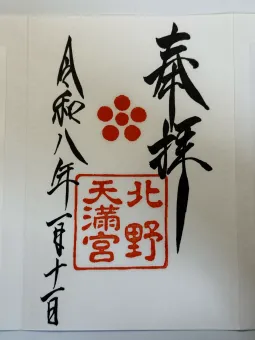 奉拝
北野
天満宮
令和八年一月十一日